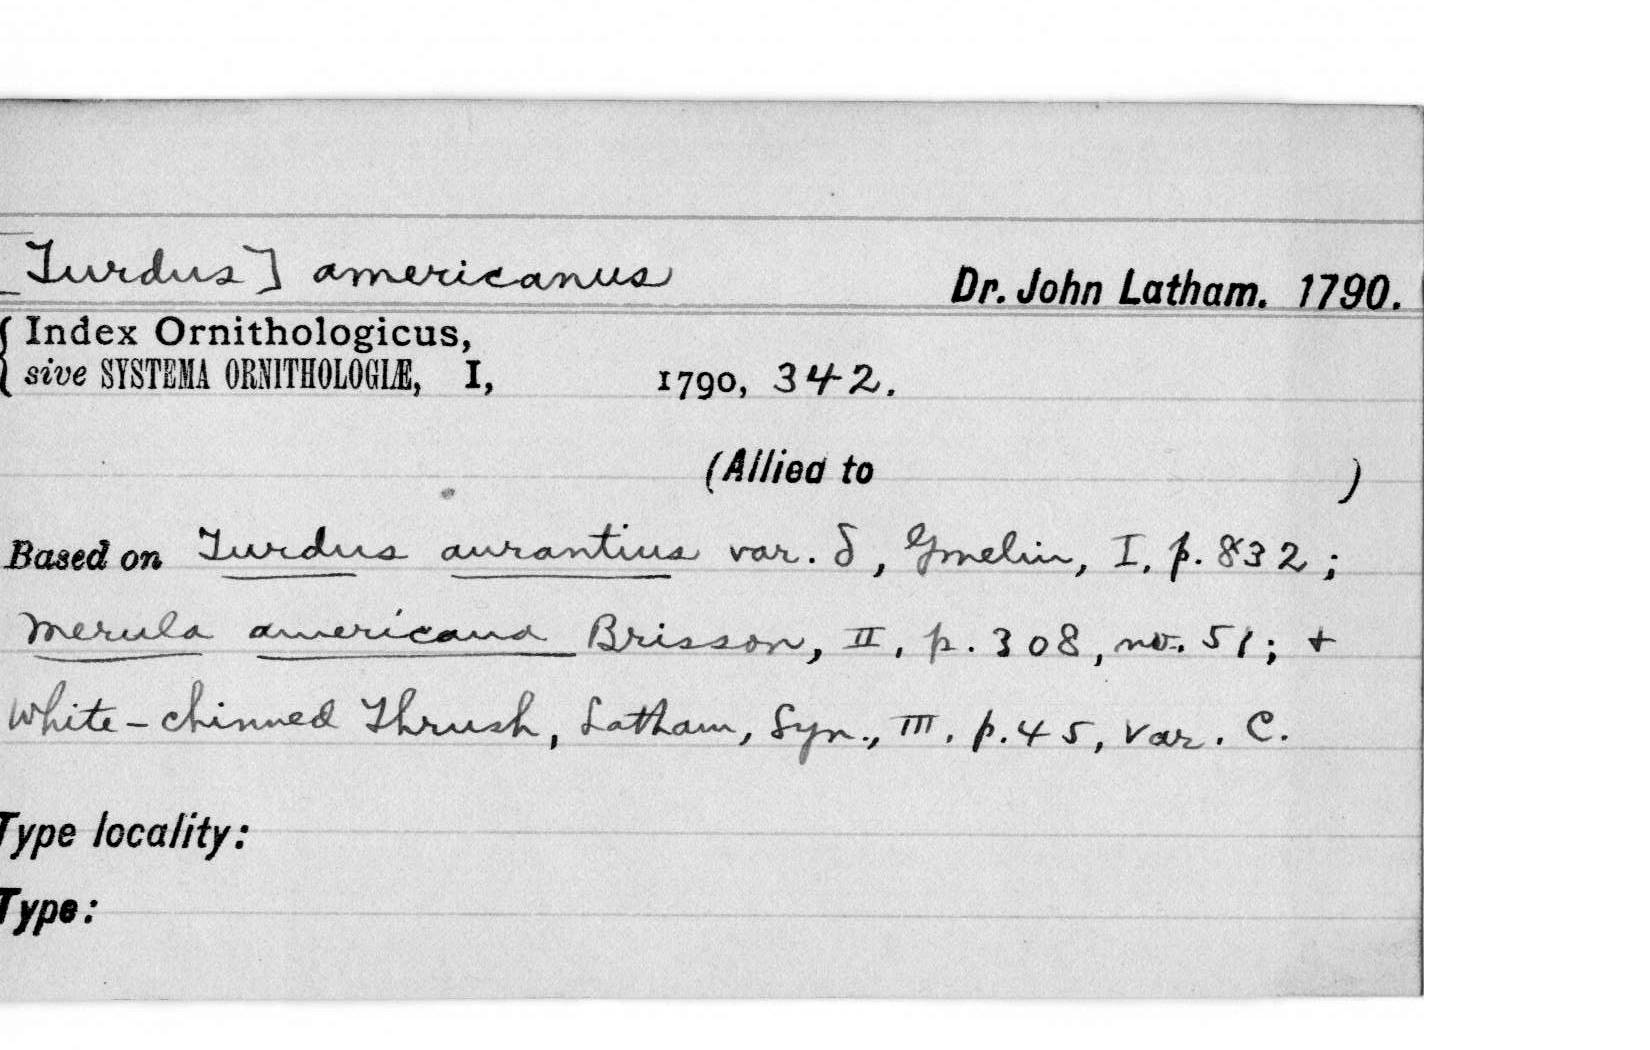 [Turdus] americanus Dr. John Latham. 1790.
{ Index Ornithologicus,
sive SYSTEMA ORNITHOLOGIÆ, I, 1790, 342.
(Allied to )
Based on Turdus aurantius var. δ, Gmelin, I, p. 832;
Merula americana Brisson, II, p. 308, no. 51; +
White-chinned Thrush, Latham, Syn., III, p. 45, var. C.
Type locality:
Type: